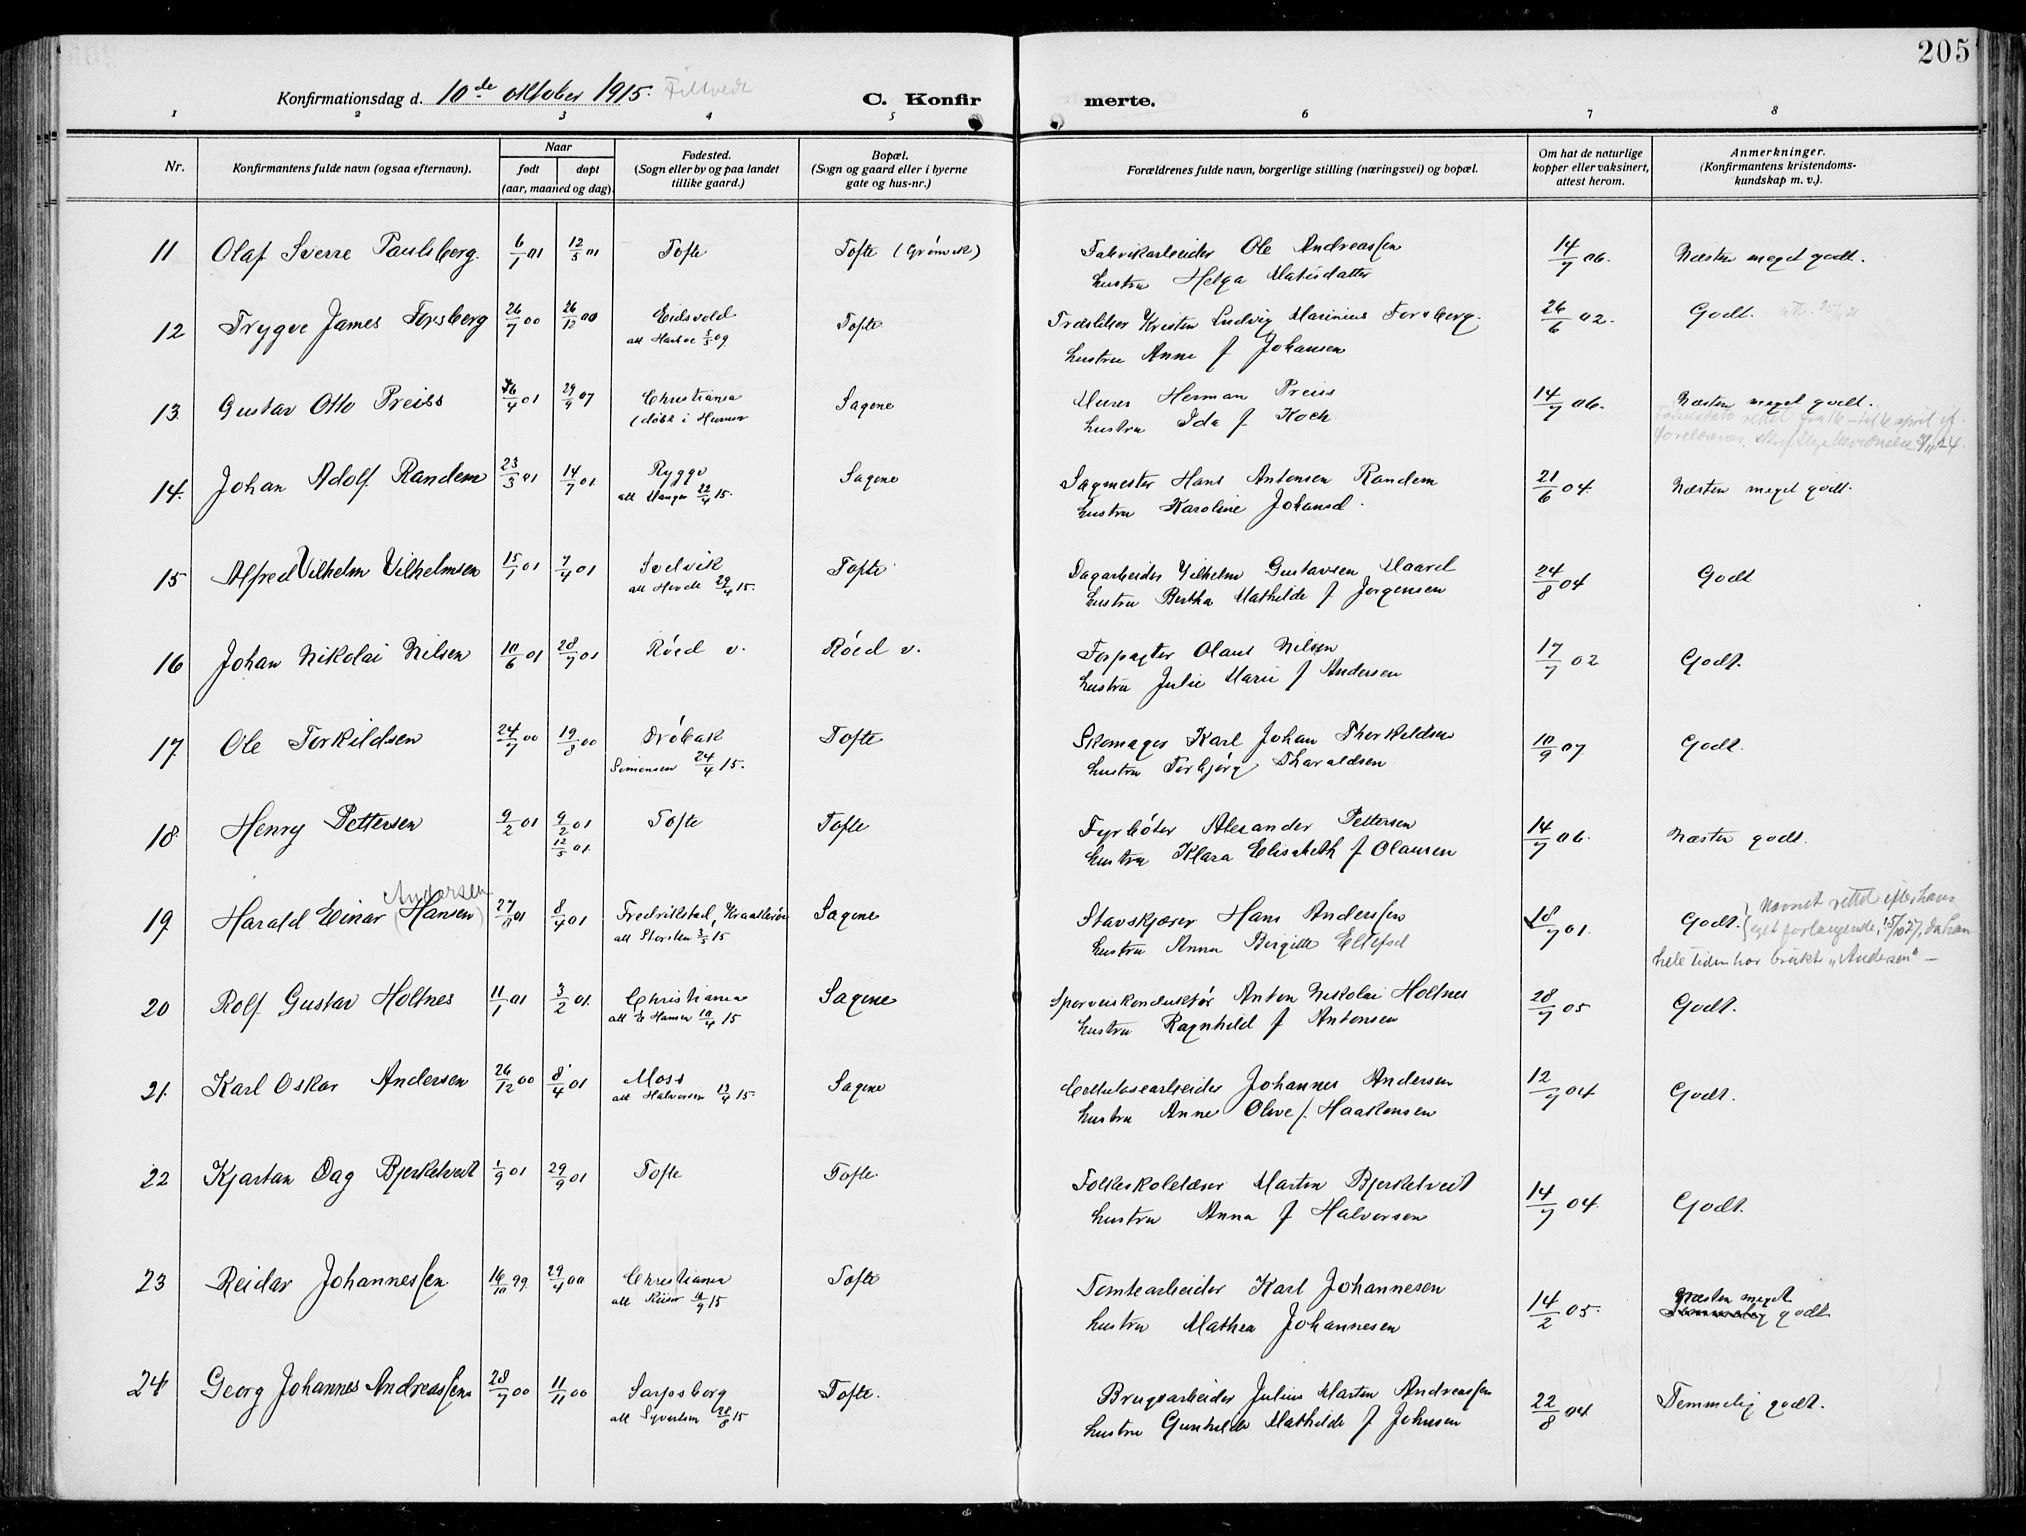 205
Konfirmationsdag d. 10de oktober 1915. Filtvedt
C. Konfirmerte.
1 2 3 4 5 6 7 8
Nr. Konfirmantens fulde navn (ogsaa efternavn). Naar født døpt (aar, maaned og dag). Fødested. (Sogn eller by og paa landet tillike gaard.) Bopæl. (Sogn og gaard eller i byerne gate og hus-nr.) Forældrenes fulde navn, borgerlige stilling (næringsvei) og bopæl. Om hat de naturlige kopper eller vaksinert, attest herom. Anmerkninger. (Konfirmantens kristendomskundskap m. v.).
11 Olaf Sverre Paulsberg. 6/1 01 12/5 01 Tofte Tofte (Grønvik) Fabrikarbeider Ole Andreassen 14/7 06. Næsten meget godt.
hustru Helga Matisdatter
12 Trygve James Forsberg 26/7 00 26/12 00 Eidsvold Tofte Træsliber Kristen Ludvig Marinius Forsberg. 26/6 02. Godt.
att 5/5 09 hustru Anne f Johansen
13. Gustav Otto Preiss 16/4 01 29/9 07 Christiania Sagene Murer Herman Preiss 14/7 06. Næsten meget godt.
(døbt i Hurum hustru Ida f Koch
14. Johan Adolf Randem 23/3 01 14/7 01 Rygge Sagene Sagmester Hans Antonsen Randem 21/6 04. Næsten meget godt.
att Hauger 22/4 15. hustru Karoline Johansd.
15 Alfred Vilhelm Vilhelmsen 15/1 01 7/4 01 Svelvik Tofte Dagarbeider Vilhelm Gustavsen 24/8 04 Godt
att 29/4 15. hustru Bertha Mathilde f Jørgensen
16 Johan Nikolai Nilsen 10/6 01 28/7 01 Røed v. Røed v. Forpagter Olaus Nilsen 17/7 02 Godt.
hustru Julie Marie f Andersen
17. Ole Torkildsen 24/7 00 19/8 00 Drøbak Tofte Skomager Karl Johan Thorkildsen 10/9 07 Godt.
Simonsen 24/4 15. hustru Torbjørg Tharaldsen
18. Henry Pettersen 9/2 01 9/2 01 Tofte Tofte Fyrbøter Alexander Pettersen 14/7 06. Næsten godt.
12/5 01. hustru Klara Elisabeth f Olausen
Andersen
19. Harald Einar (Hansen) 27/8 01 8/4 01 Fredrikstad, Kraakerøy Sagene Stavskjærer Hans Anderssen 18/7 01. Godt. Navnet rettet efter hans
att Storsten 3/5 15 hustru Anna Birgitte eget forlangende, 15/10 27, da han
hele tiden har brukt „Andersen" –
20 Rolf Gustav Holtnes 11/1 01 3/2 01. Christiania Sagene Sporveiskonduktør Anton Nikolai Holtnes 28/7 05 Godt.
att E Hansen 10/4 15 hustru Ragnhild f Antonsen
21. Karl Oskar Andersen 26/12 00 8/4 01 Moss Sagene Cellulosearbeider Johannes Andersen 12/9 04 Godt.
att Halvorsen 13/4 15. hustru Anne Olive f. Haakonsen
22 Kjartan Dag Bjerketveit 1/9 01 29/9 01 Tofte Tofte. Folkeskolelærer Martin Bjerketveit 14/7 04. Godt.
hustru Anna f Halvorsen
23 Reidar Johannessen. 16/10 99. 29/4 00 Christiania Tofte Tomtearbeider Karl Johannesen 14/2 05. Næsten meget
att 11/9 15 hustru Mathea Johannesen Temmelig godt
24 Georg Johannes Andreassen 28/7 00 11/11 00 Sarpsborg Tofte. Brugsarbeider Julius Martin Andreassen 22/8 04 Temmelig godt.
att Syvertsen 28/8 15 hustru Gunhilde Mathilde f Johnsen